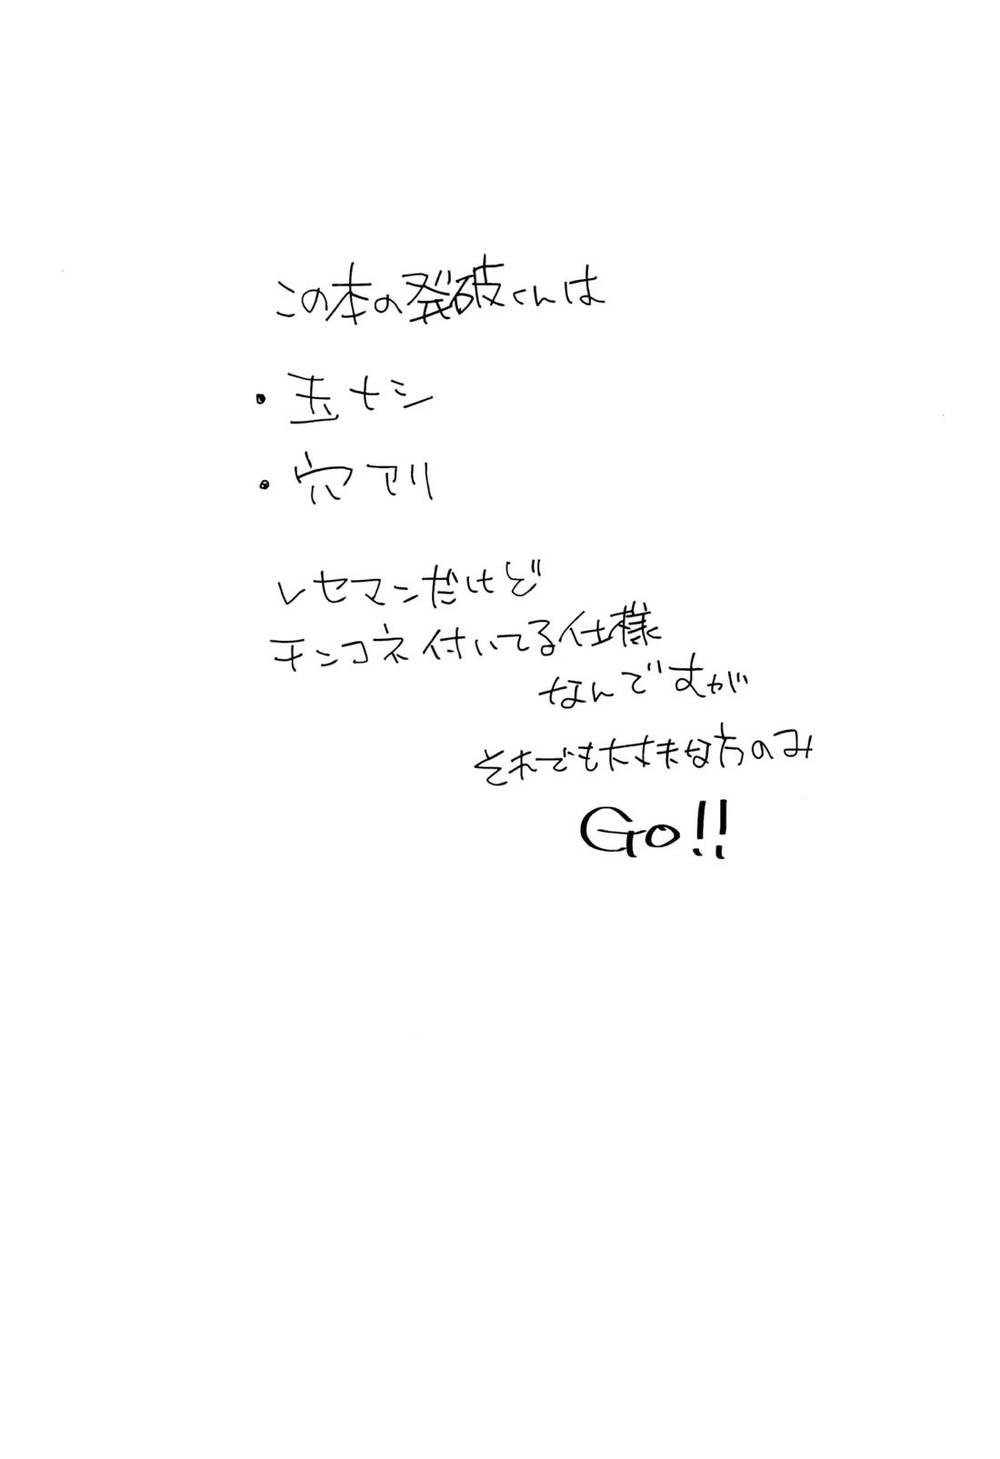 この本の発破くんは
・玉ナシ
・穴アリ
レセマンだけど
チンコネ付いてる仕様
なんですが
それでも大丈夫な方のみ
Go!!